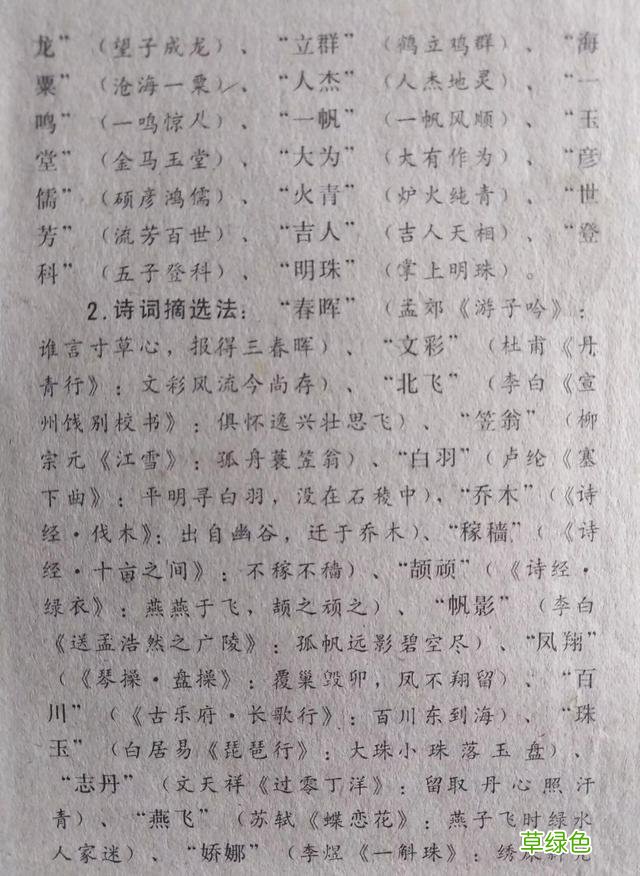 龙”（望子成龙）、“立群”（鹤立鸡群）、“海
粟”（沧海一粟）、“人杰”（人杰地灵）、“一
鸣”（一鸣惊人）、“一帆”（一帆风顺）、“玉
堂”（金马玉堂）、“大为”（大有作为）、“彦
儒”（硕彦鸿儒）、“火青”（炉火纯青）、“世
芳”（流芳百世）、“吉人”（吉人天相）、“登
科”（五子登科）、“明珠”（掌上明珠）。
2.诗词摘选法：“春晖”（孟郊《游子吟》：
谁言寸草心，报得三春晖）、“文彩”（杜甫《丹
青行》：文彩风流今尚存）、“北飞”（李白《宣
州饯别校书》：俱怀逸兴壮思飞）、“笠翁”（柳
宗元《江雪》：孤舟蓑笠翁）、“白羽”（卢纶《塞
下曲》：平明寻白羽，没在石稜中），“乔木”（《诗
经·伐木》：出自幽谷，迁于乔木）、“稼穑”（《诗
经·十亩之间》：不稼不穑）、“颉颃”（《诗经·
绿衣》：燕燕于飞，颉之颃之）、“帆影”（李白
《送孟浩然之广陵》：孤帆远影碧空尽）、“凤翔”
（《琴操·盘操》：覆巢毁卵，凤不翔留）、“百
川”（《古乐府·长歌行》：百川东到海）、“珠
玉”（白居易《琵琶行》：大珠小珠落玉盘）、
“志丹”（文天祥《过零丁洋》：留取丹心照汗
青）、“燕飞”（苏轼《蝶恋花》：燕子飞时绿水
人家迷）、“娇娜”（李煜《一斛珠》：绣床斜凭
草绿色